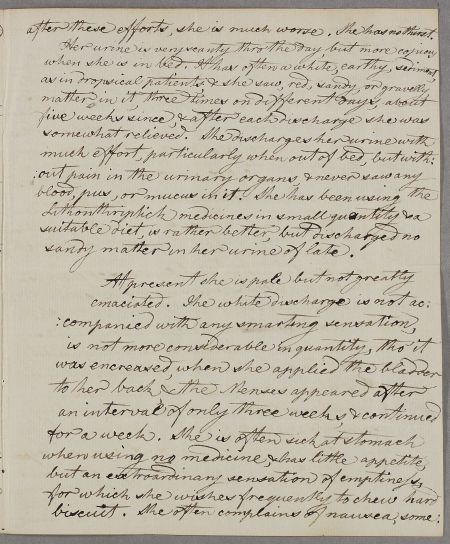 after these efforts, she is much worse. She has no thirst.
Her urine is very scanty thro the day but more copious
when she is in bed. It has often a white, earthy, sediment,
as in dropsical patients & she saw, red, sandy, or gravelly
matter in it three times on different days, about
five weeks since, & after each discharge she was
somewhat relieved. She discharges her urine with
much effort, particularly when out of bed, but with:
:out pain in the urinary organs & never saw any
blood, pus, or mucus in it. She has been using the
Lithonthriptick medicines in small quantity & a
suitable diet, is rather better, but discharged no
sandy matter in her urine of late.
At present she is pale but not greatly
emaciated. The white discharge is not ac:
:companied with any smarting sensation,
is not more considerable in quantity, tho' it
was encreased, when she applied the bladder
to her back & the Menses appeared after
an interval of only three weeks, & continued
for a week. She is often sick at stomach
when using no medicine, & has little appetite,
but an extraordinary sensation of emptiness,
for which she wishes frequently to chew hard
biscuit. She often complains of nausea, some: